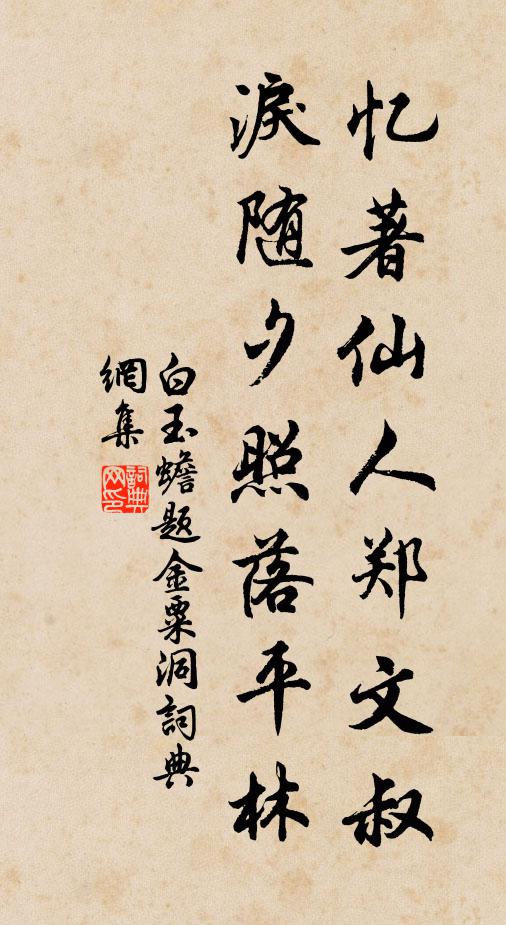 忆著仙人郑文叔
淚随夕照落平林
白玉蟾题金粟洞詞典
網集
詞典
网印